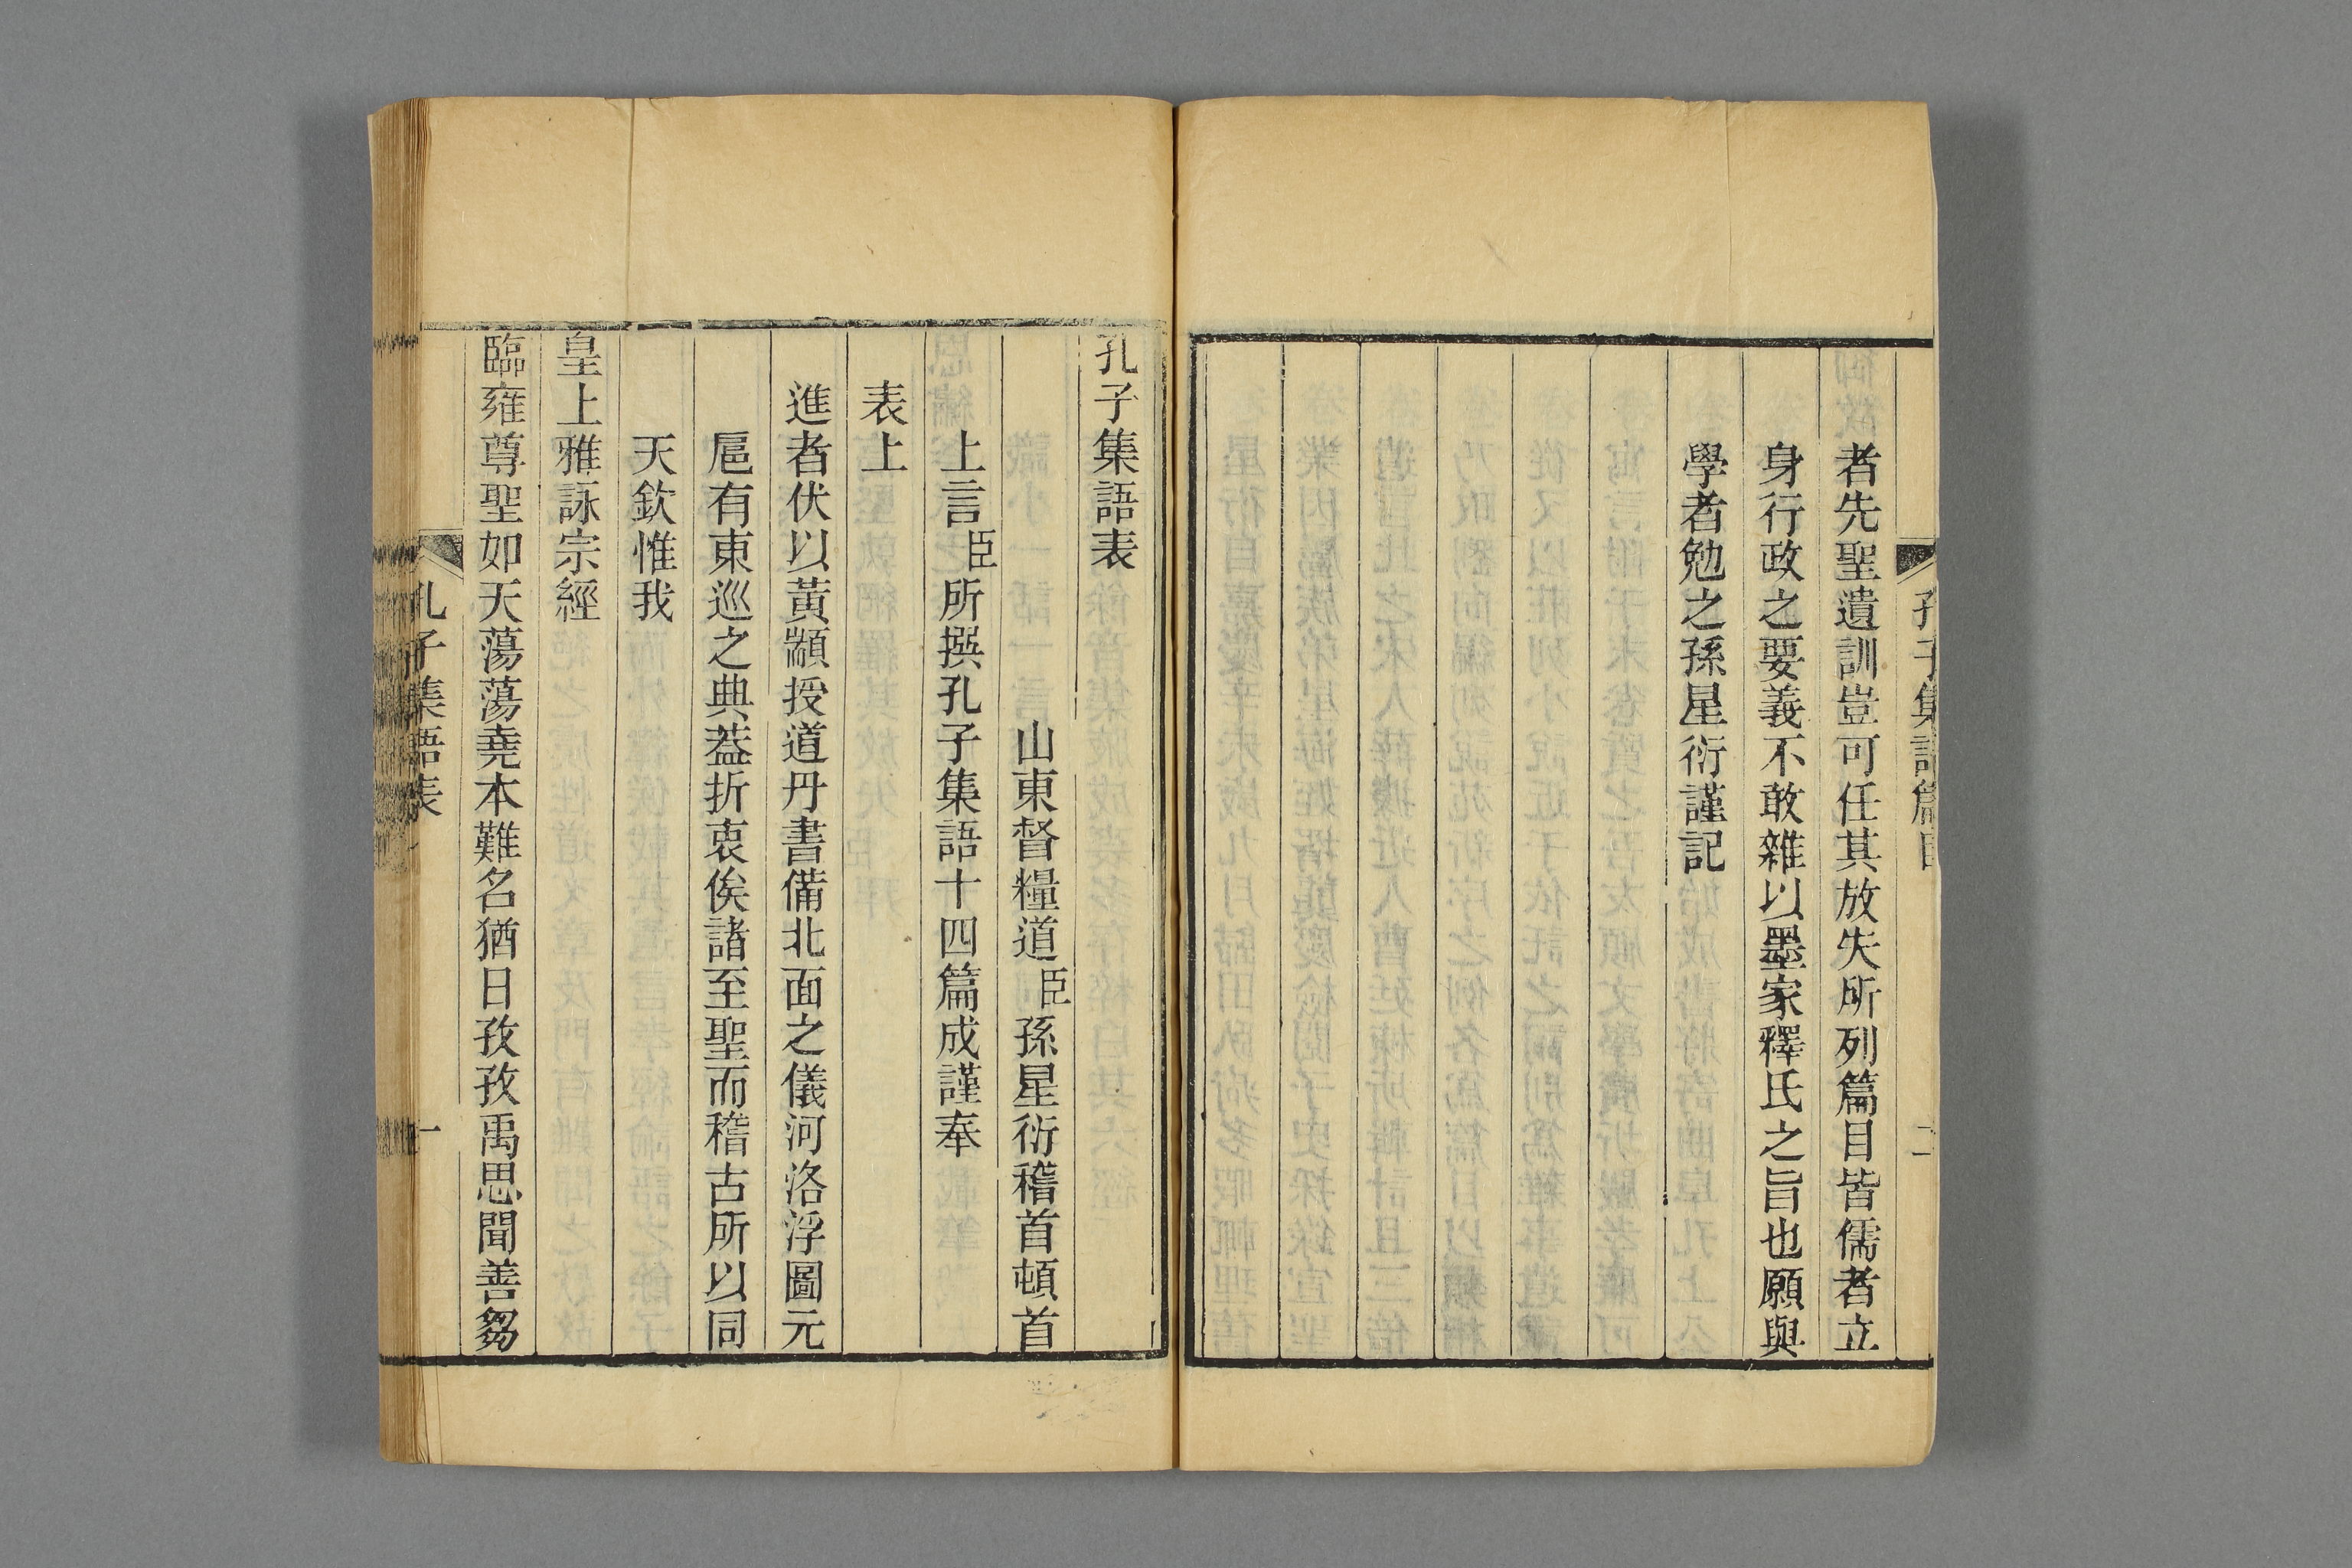 孔子集語篇目
二
者先聖遺訓豈可任其放失所列篇目皆儒者立
身行政之要義不敢雜以墨家釋氏之旨也願與
學者勉之孫星衍謹記
孔子集語表
山東督糧道臣孫星衍稽首頓首
上言臣所撰孔子集語十四篇成謹奉
表上
進者伏以黃顓授道丹書備北面之儀河洛浮圖元
扈有東巡之典葢折衷俟諸至聖而稽古所以同
天欽惟我
皇上雅詠宗經
臨雍尊聖如天蕩蕩堯本難名猶日孜孜禹思聞善芻
孔子集語表
一